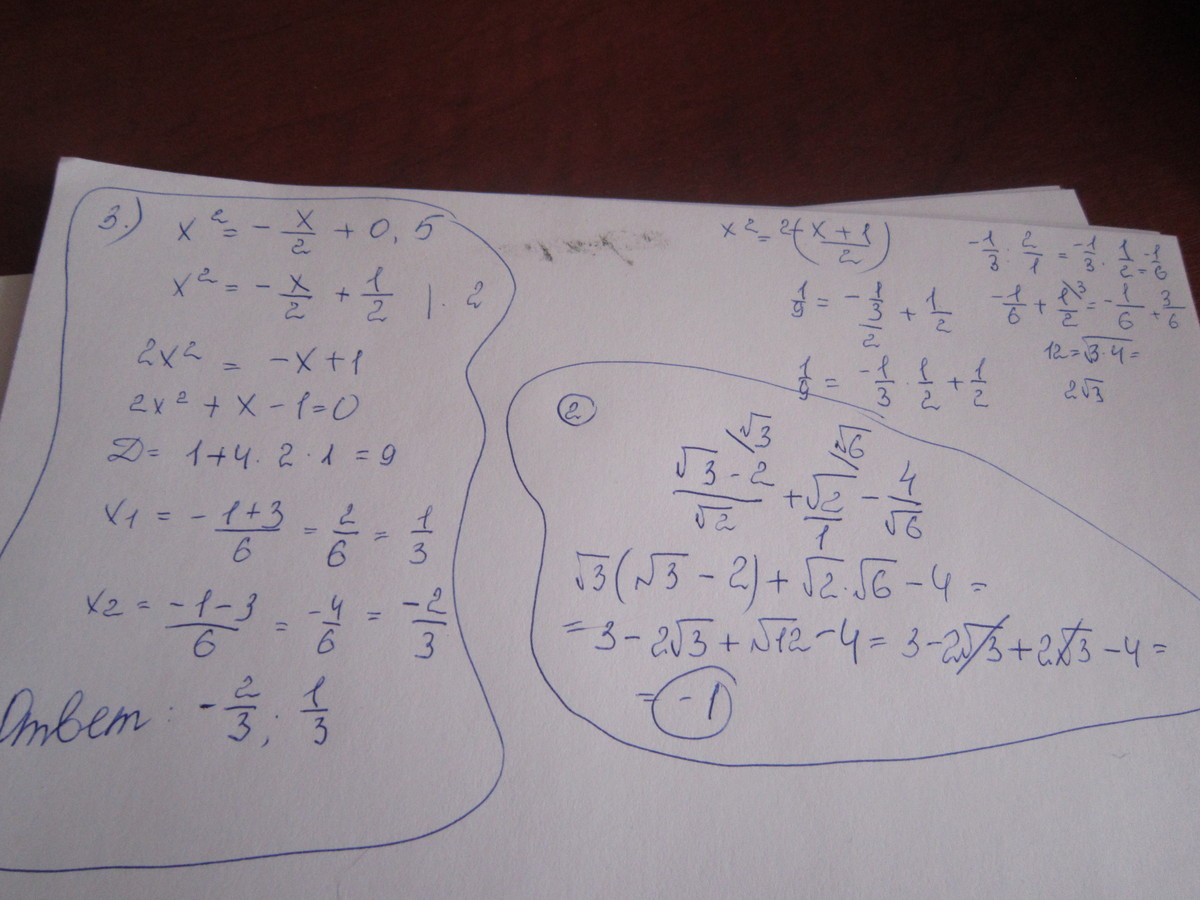 3.) x² = -x/2 + 0,5
x² = -x/2 + 1/2 | · 2
2x² = -x+1
2x² + x - 1=0
D= 1+4 · 2 · 1 = 9
x1 = - 1+3/6 = 2/6 = 1/3
x2 = -1-3/6 = -4/6 = -2/3
Ответ: -2/3; 1/3
x² = 2(-x+1/2)
1/9 = -1/3/2 + 1/2
1/9 = -1/3 · 1/2 + 1/2
-1/3 : 2/1 = -1/3 · 1/2 = -1/6
-1/6 + 1\3/2 = -1/6 + 3/6
12=√3·4 =
2√3
2
√3-2/√2 /√3 + √2/1 /√6 - 4/√6
√3(√3-2)+√2·√6-4=
=3-2√3+√12-4=3-2√3+2√3-4=
= -1